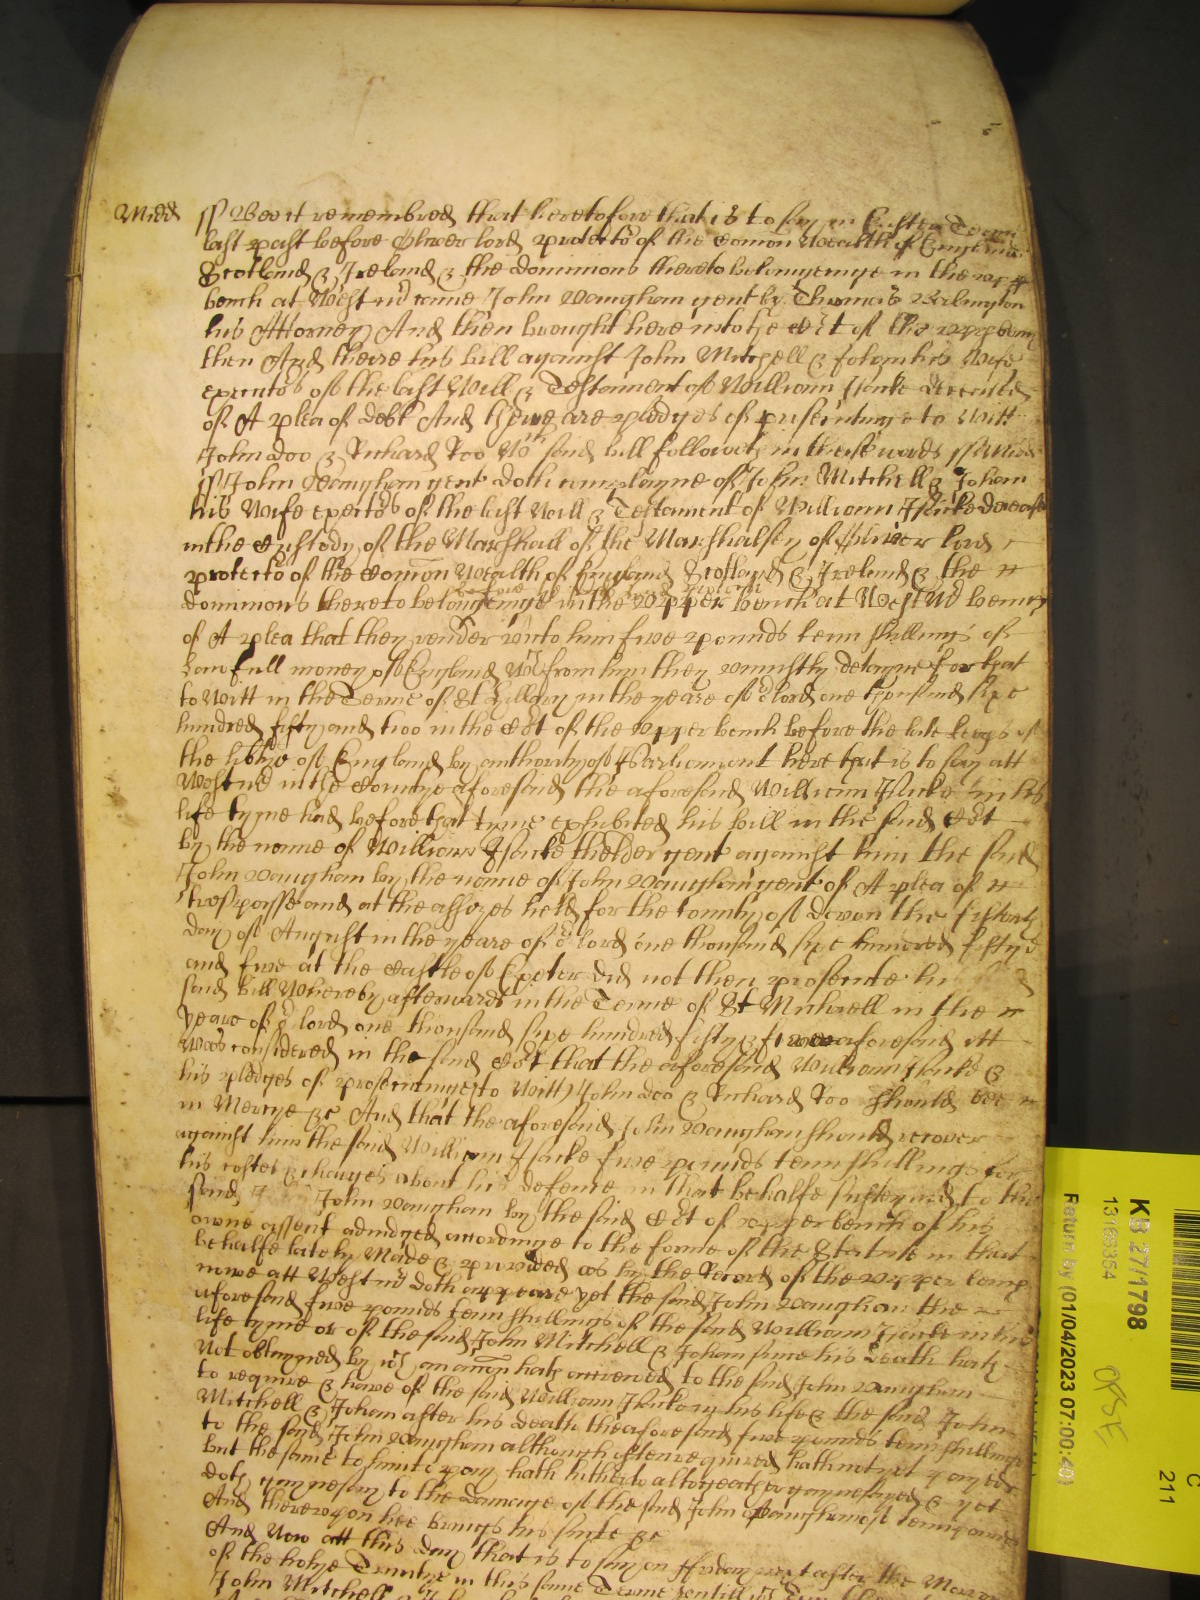 Midd ss Bee it remembred that heretofore that is to say in Easter Terme
last past before Oliver lord protector of the Comon Wealth of England
Scotland & Ireland & the dominions thereto belongeinge in the upper
bench at Westmr came John Vaugham gent by Thomas
his Attorney And then brought here into the Court of the upper bench
then And there his bill against John Mitchell & Johan his Wife
executors of the last Will & Testament of William deceased
of A plea of debt And there are pledges of prosecutinge to Witt
John Doo & Richard Roo Wch said bill followeth in these words ss Midd
ss John Vaugham gent doth complayne of John Mitchell & Johan
his Wife executors of the last Will & Testament of William deceased
in the Custody of the Marshall of the Marshalsey of Oliver lord
protector of the Comon Wealth of England Scotland & Ireland & the
dominions thereto belongeinge in the Upper bench at Westmr beinge
of A plea that they render unto him five pounds tenn shillings of
Lawfull money of England Wch from him they uniustly detayne for that
to Witt in the Terme of St Hillary in the yeare of or lord one thousand sixe
hundred fifty and two in the Court of the Upper bench before the late keeps of
the libtye of England by authority of Parliament here that is to say att
Westmr in the County aforesaid the aforesaid William in his
life tyme had before that tyme exhibited his bill in the said Court
by the name of William the elder gent against him the said
John Vaugham by the name of John Vaugham gent of A plea of
trespasse and at the assizes held for the County of Devon the
day of August in the yeare of or lord one thousand sixe hundred fifty
and five at the Castle of Exeter did not then prosecute his
said bill Whereby afterwards in the Terme of St Michaell in the
yeare of or lord one thousand sixe hundred fifty & aforesaid itt
Was considered in the said Court that the aforesaid William &
his pledges of prosecutinge (to Witt) John Doo & Richard Roo should bee
in Mercye &c And that the aforesaid John Vaugham should recover
against him the said William five pounds tenn shillings for
his costes & charges about his defence in that behalfe susteyned to the
said John Vaugham by the said Court of upper bench of his
owne assent adiudged accordinge to the forme of the Statute in that
behalfe lately Made & provided as by the Record of the upper bench
nowe att Westmr doth appeare yet the said John Vaugham the
aforesaid five pounds tenn shillings of the said William in his
life tyme or of the said John Mitchell & Johan since his death hath
not obteyned by wch an accon hath accrewed to the said John Vaugham
to require & have of the said William in his life & the said John
Mitchell & Johan after his death the aforesaid five pounds tenn shillings
to the said John Vaugham although often required hath not yet payed
but the same to him to pay hath hitherto altogeather gaynesayed & yet
doth gaynesay to the damage of the said John Vaugham of tenn pounds
And thereupon hee brings his suite &c
And Now att this day that is to say on Fryday next after the Morrow
of the holye Trinitye in this same Terme untill wch
John Mitchell
KB 27/1798
13163354
Return by (01/04/2023 07:00:40)
C
211